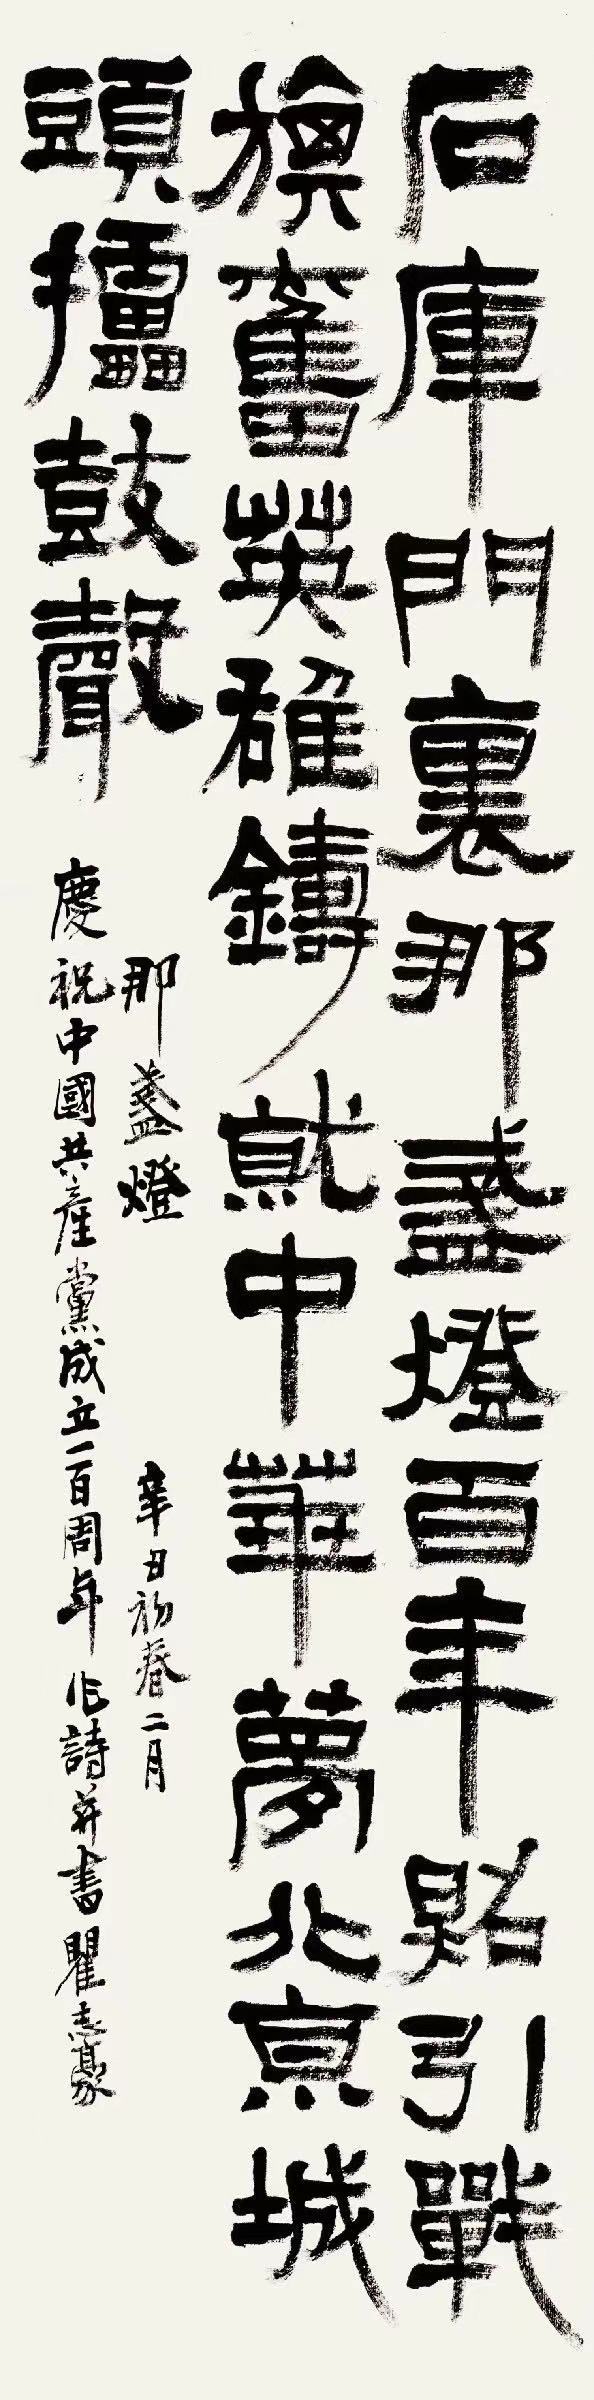 石庫門裏那盞燈百年點引戰
旗奮英雄鑄就中華夢北京城
頭擂鼓聲
那盞燈 辛丑初春二月
慶祝中國共產黨成立一百周年作詩并書瞿志豪